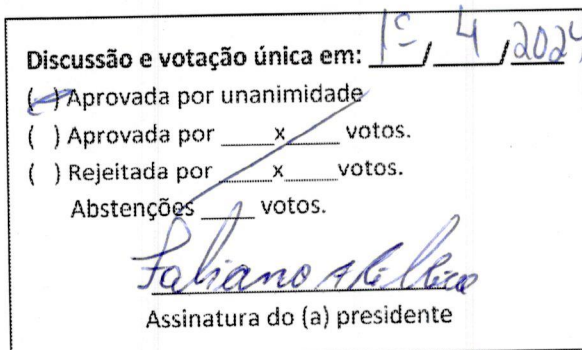 Discussão e votação única em: 1º / 4 / 2024
( ) Aprovada por unanimidade
( ) Aprovada por ____x____ votos.
( ) Rejeitada por ____x____votos.
Abstenções ____ votos.
Fabiano
Assinatura do (a) presidente